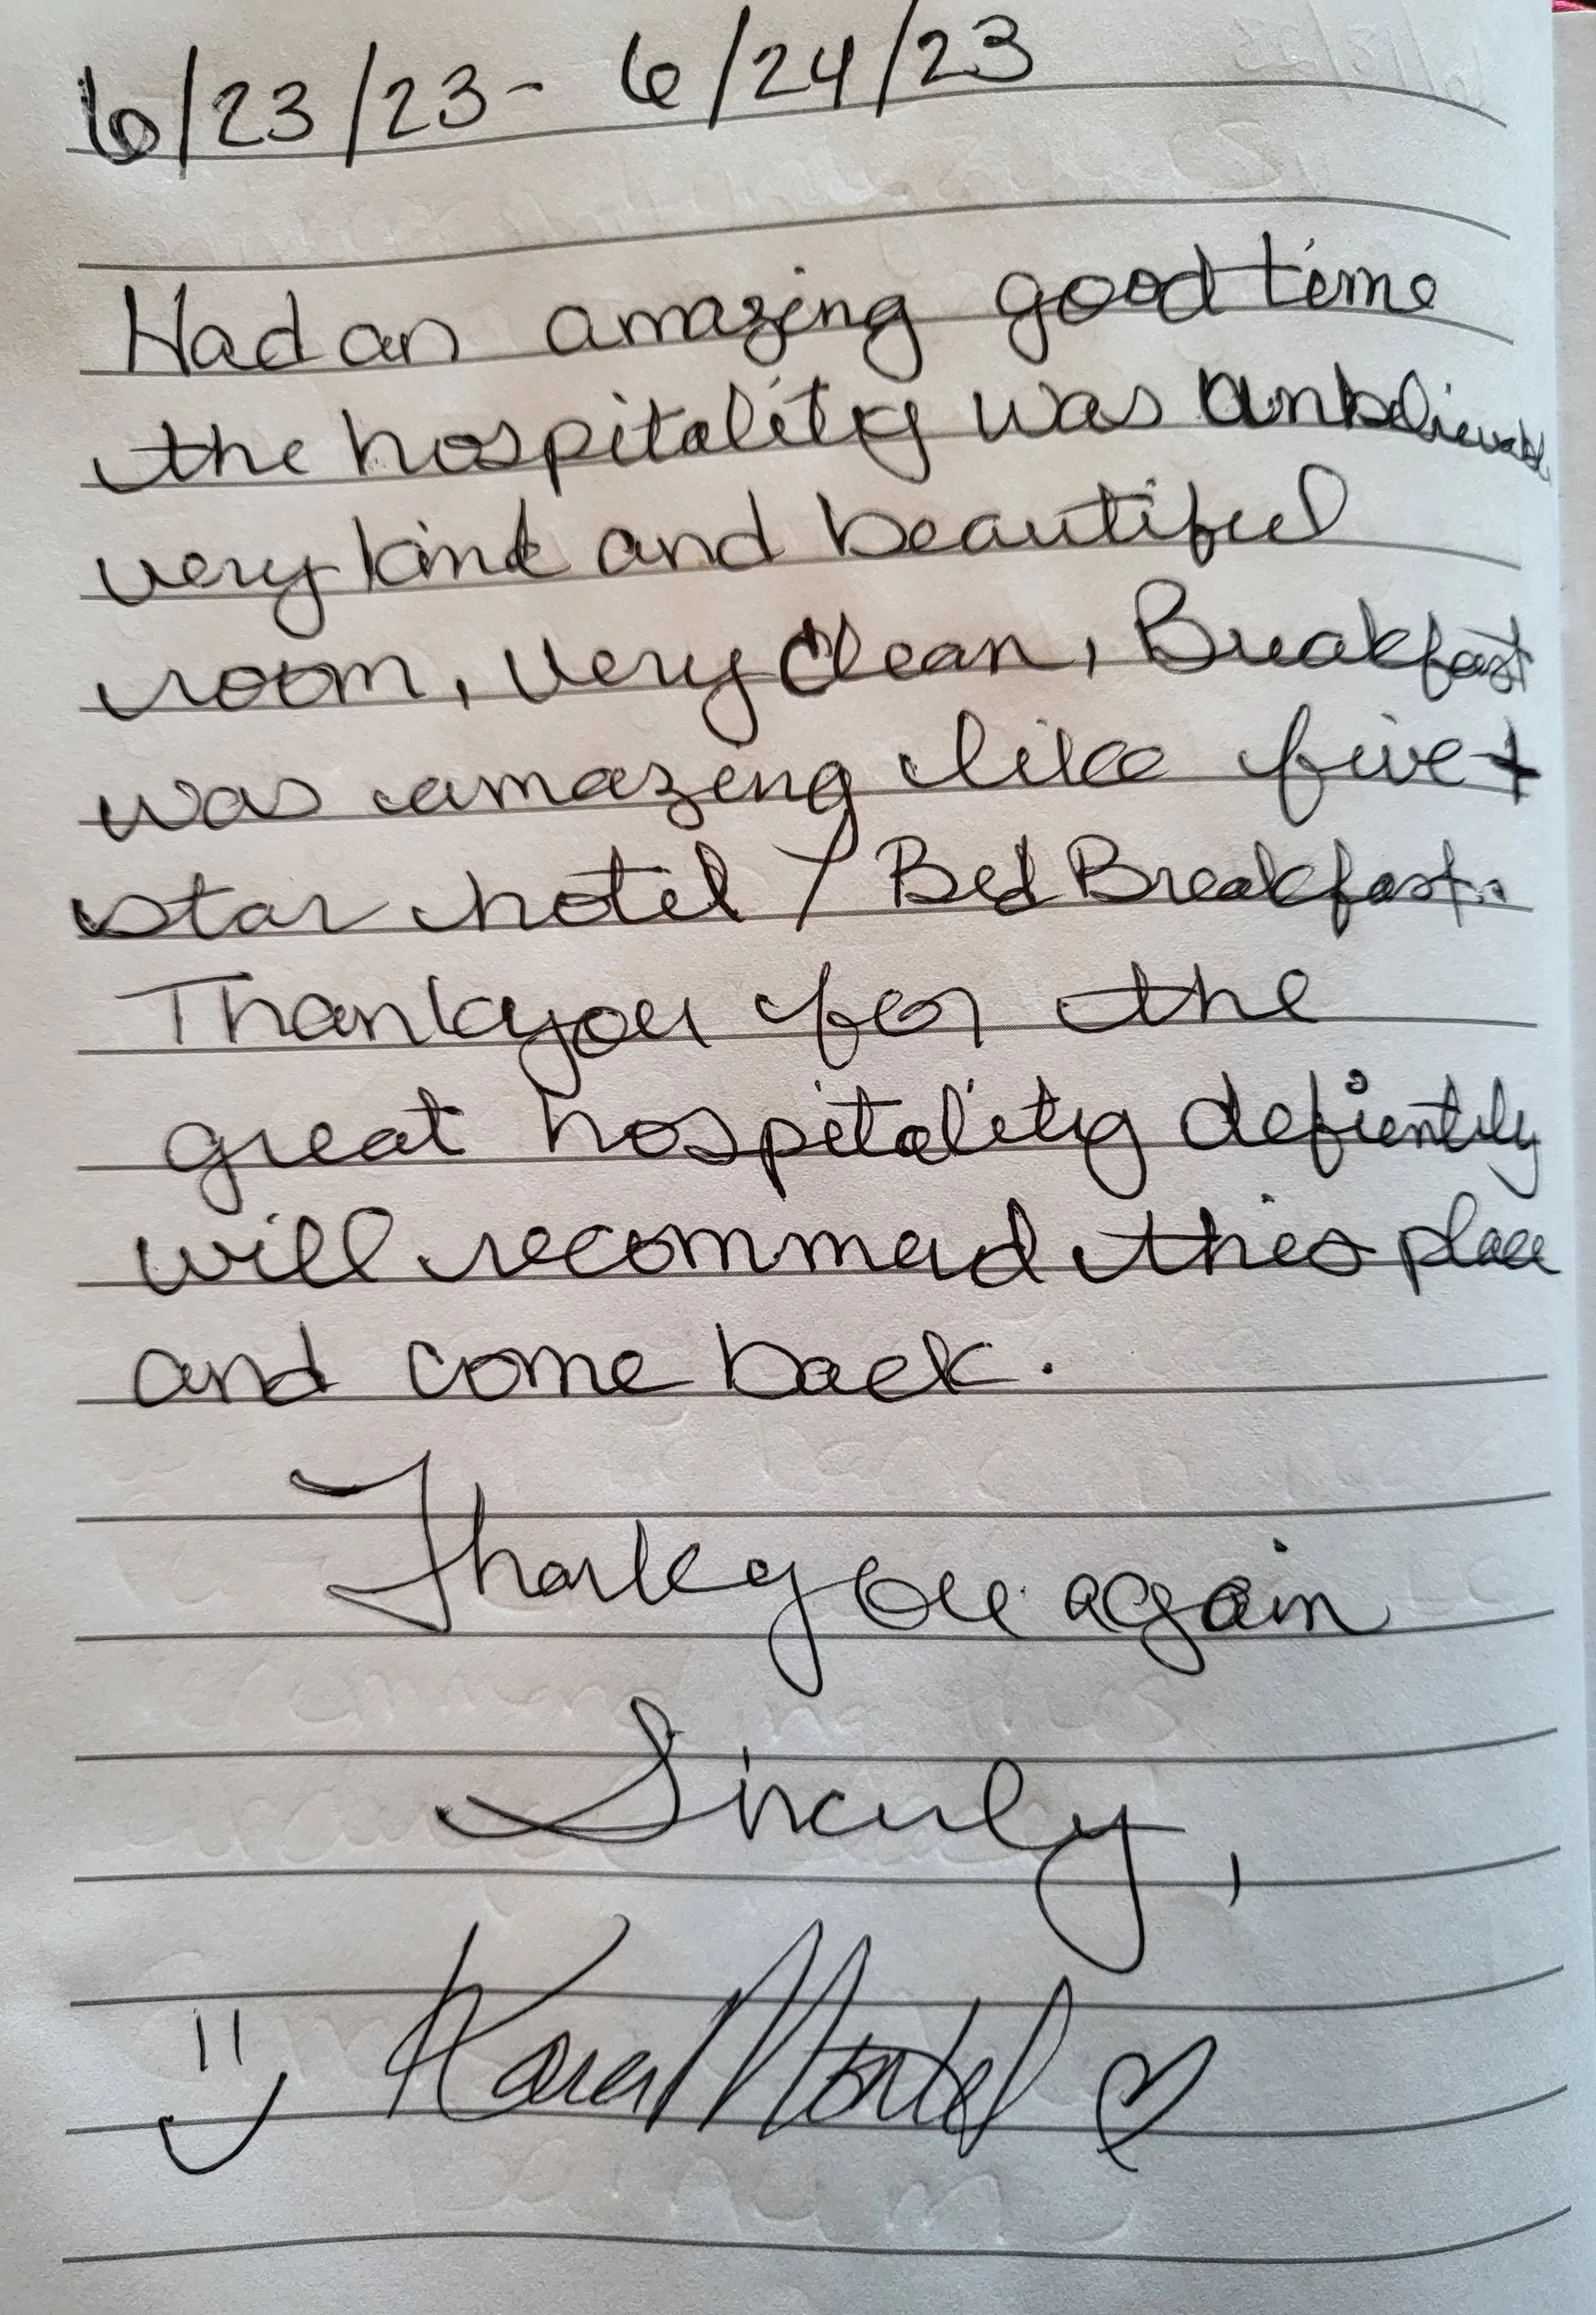 6/23/23 - 6/24/23
Had an amazing good time
the hospitality was unbelievabl
very kind and beautiful
room, very clean, Breakfast
was amazing like five +
star hotel / Bed Breakfast..
Thankyou for the
great hospitality defiently
will recommend this place
and come back.
Thankyou again
Sincerly,
Karen ♡